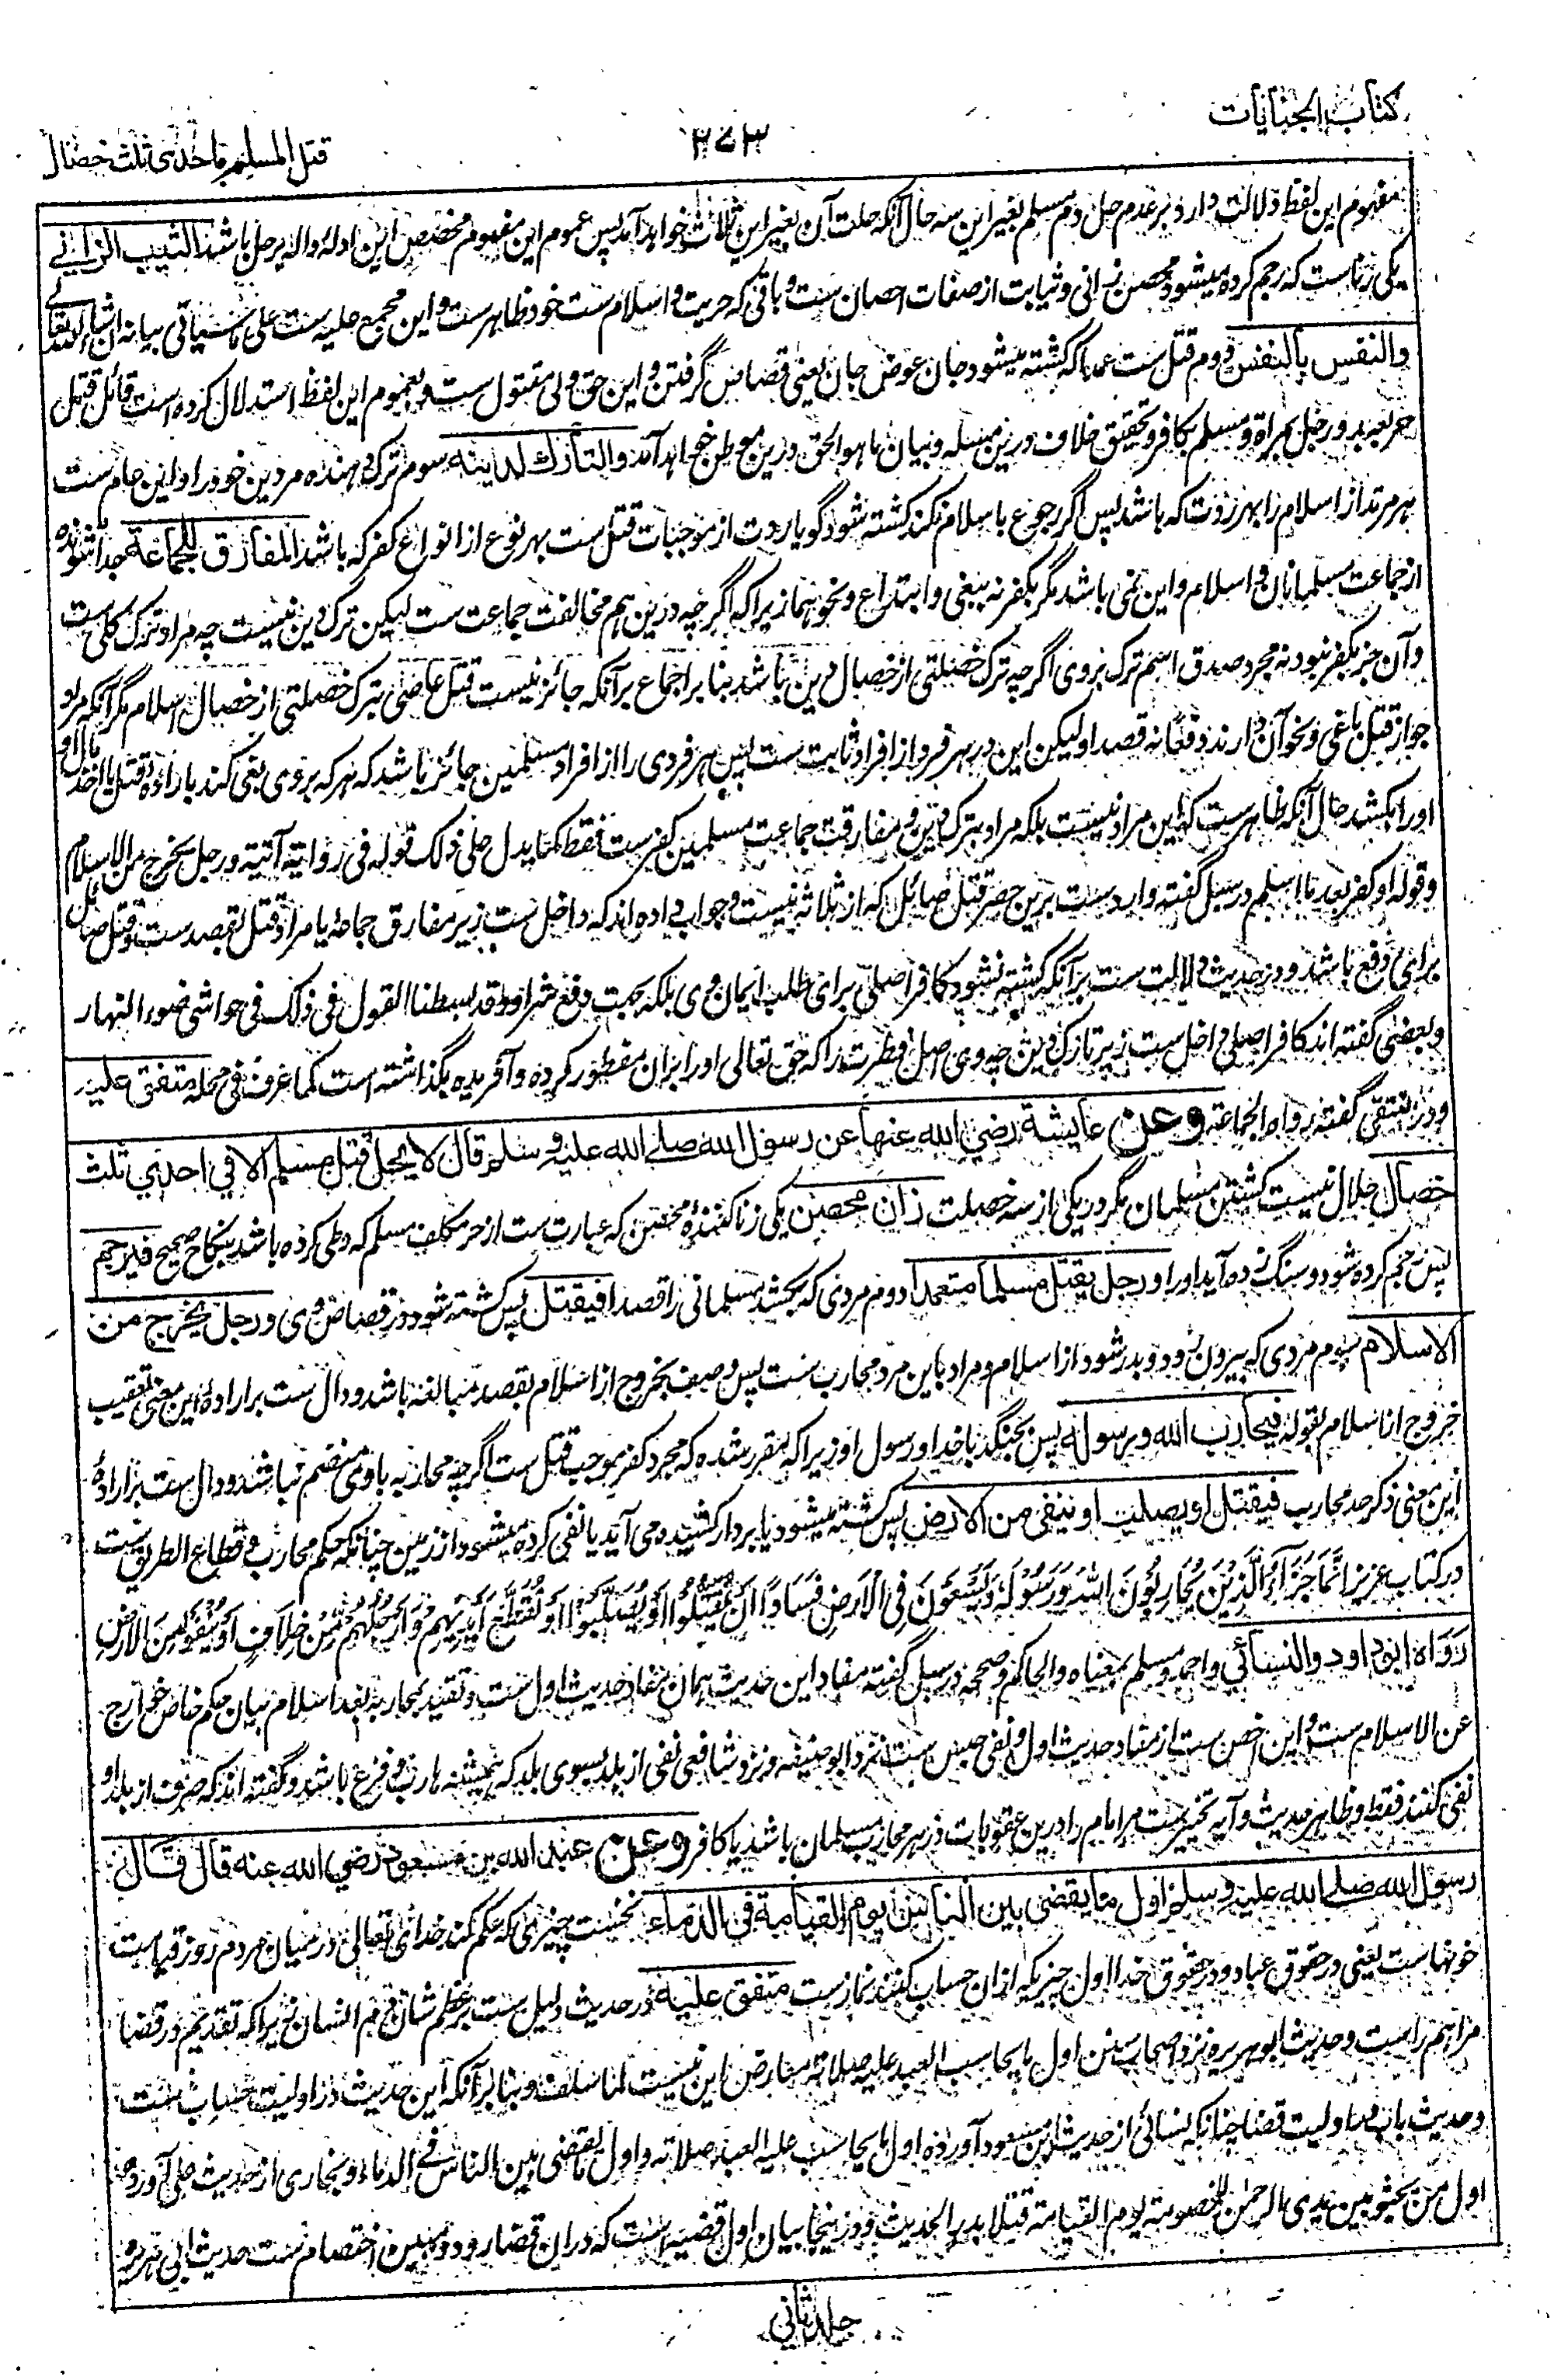 كتاب الجنايات
۲۷۳
قتل المسلم باحدى ثلث خصال
مفهوم این لفظ دلالت دارد بر عدم حل دم مسلم بغیر این سه حال آنکه حلت آن بغیر این ثلاث خواهد آمد پس عموم این مفهوم مخصص این ادله داله بر حل باشد الثيب الزاني
یکی زناست که رجم کرده میشود محصن زانی و ثیابت از صفات احصان ست و باقی که حریت و اسلام ست خود ظاهرست و این مجمع علیه ست علی ما سیاتی بیانه ان شاء الله تعالی
والنفس بالنفس دوم قتل ست عمدا که کشته میشود جان عوض جان یعنی قصاص گرفتن و این حق ولی مقتول ست و بعموم این لفظ استدلال کرده است قائل قتل
حر بعبد و رجل بمراة و مسلم بکافر و تحقیق خلاف درین مسئله و بیان ما هو الحق درین مواطن خواهد آمد والتارك لدينه سوم ترک دهنده مر دین خود را و این عام ست
هر مرتد از اسلام را بهر ردت که باشد پس اگر رجوع باسلام نکند کشته شود گویا ردت از موجبات قتل ست بهر نوع از انواع کفر که باشد المفارق للجماعة جدا شونده
از جماعت مسلمانان و اسلام و این نمی باشد مگر بکفر نه ببغی و ابتداع و نحوهما زیرا که اگرچه درین هم مخالفت جماعت ست لیکن ترک دین نیست چه مراد ترک کلی ست
و آن جز بکفر نبود نه مجرد صدق اسم ترک بروی اگرچه ترک خصلتی از خصال دین باشد بنا بر اجماع بر آنکه جائز نیست قتل عاصی بترک خصلتی از خصال اسلام مگر آنکه مراد
جواز قتل باغی و نحو آن دارند دفعا نه قصدا و لیکن این در هر فرد از افراد ثابت ست پس هر فردی را از افراد مسلمین جائز باشد که هر که بروی بغی کند باراده قتل یا اخذ مال او
او را بکشد حال آنکه ظاهرست که این مراد نیست بلکه مراد بترک دین و مفارقت جماعت مسلمین کفرست فقط کما یدل علی ذلک قوله فی روایة آتیة و رجل یخرج من الاسلام
و قوله او کفر بعد ما اسلم در سبل گفته وارد ست برین حصر قتل صائل که از ثلاثه نیست و جواب داده اند که داخل ست زیر مفارق جماعة یا مراد قتل بقصد ست و قتل صائل
برای دفع باشد و در حدیث دلالت ست بر آنکه کشته نشود کافر اصلی برای طلب ایمان وی بلکه بجهت دفع شر او وقد بسطنا القول فی ذلک فی حواشی ضوء النهار
و بعضی گفته اند کافر اصلی داخل ست زیر تارک دین چه وی اصل فطرت را که حق تعالی او را بران مفطور کرده و آفریده بگذاشته است کما عرف فی محله متفق عليه
و در منتقی گفته رواه الجماعة وعن عايشة رضي الله عنها عن رسول الله صلى الله عليه وسلم قال لا يحل قتل مسلم الا في احدى ثلث
خصال حلال نیست کشتن مسلمان مگر در یکی از سه خصلت زان محصن یکی زنا کننده محصن که عبارت ست از حر مکلف مسلم که وطی کرده باشد بنکاح صحیح فيرجم
پس رجم کرده شود و سنگ زده آید او را و رجل يقتل مسلما متعمدا دوم مردی که بکشد مسلمانی را قصدا فيقتل پس کشته شود در قصاص وی و رجل يخرج من
الاسلام سوم مردی که بیرون رود و بدر شود از اسلام و مراد باین مرد محارب ست پس وصف بخروج از اسلام بقصد مبالغه باشد و دال ست بر اراده این معنی تعقیب
خروج از اسلام بقوله فيحارب الله و رسوله پس بجنگد با خدا و رسول او زیرا که مقرر شده که مجرد کفر موجب قتل ست اگرچه محاربه با وی منضم نباشد و دال ست بر اراده
این معنی ذکر حد محارب فيقتل او يصلب او ينفى من الارض پس کشته میشود یا بردار کشیده می آید یا نفی کرده میشود از زمین چنانکه حکم محارب و قطاع الطریق ست
در کتاب عزیز اِنَّمَا جَزَآءُ الَّذِیْنَ یُحَارِبُوْنَ اللهَ وَرَسُوْلَهٗ وَیَسْعَوْنَ فِی الْاَرْضِ فَسَادًا اَنْ یُّقَتَّلُوْا اَوْ یُصَلَّبُوْا اَوْ تُقَطَّعَ اَیْدِیْهِمْ وَاَرْجُلُهُمْ مِّنْ خِلَافٍ اَوْ یُنْفَوْا مِنَ الْاَرْضِ
رواه ابو داود والنسائي و احمد و مسلم بمعناه والحاکم و صححه در سبل گفته مفاد این حدیث همان مفاد حدیث اول ست و تقیید بمحاربه بعد اسلام بیان حکم خاص خارج
عن الاسلام ست و این اخص ست از مفاد حدیث اول و نفی حبس ست نزد ابو حنیفه و نزد شافعی نفی از بلد بسوی بلد که همیشه هارب و فزع باشد و گفته اند که صرف از بلد او
نفی کنند فقط و ظاهر حدیث و آیه تخییرست مر امام را درین عقوبات در هر محارب مسلمان باشد یا کافر وعن عبد الله بن مسعود رضي الله عنه قال قال
رسول الله صلى الله عليه وسلم اول ما يقضى بين الناس يوم القيامة في الدماء نخست چیزی که حکم کند خدای تعالی در میان مردم روز قیامت
خونهاست یعنی در حقوق عباد و در حقوق خدا اول چیزیکه از ان حساب کنند نمازست متفق عليه در حدیث دلیل ست بر عظم شان دم انسان زیرا که تقدیم در قضا
مر اهم راست و حدیث ابو هریره نزد اصحاب سنن اول ما یحاسب العبد علیه صلاته معارض این نیست لما سلف و بنا بر آنکه این حدیث در اولیت حساب ست
و حدیث باب در اولیت قضا چنانکه نسائی از حدیث ابن مسعود آورده اول ما یحاسب علیه العبد صلاته و اول ما یقضی بین الناس فی الدماء و بخاری از حدیث علی آورده
اول من یجثو بین یدی الرحمن للخصومة یوم القیامة قتلا بدر الحدیث و درینجا بیان اول قضیه ست که دران قضا رود و مبین اختصام ست حدیث ابی هریره
جلد ثانی